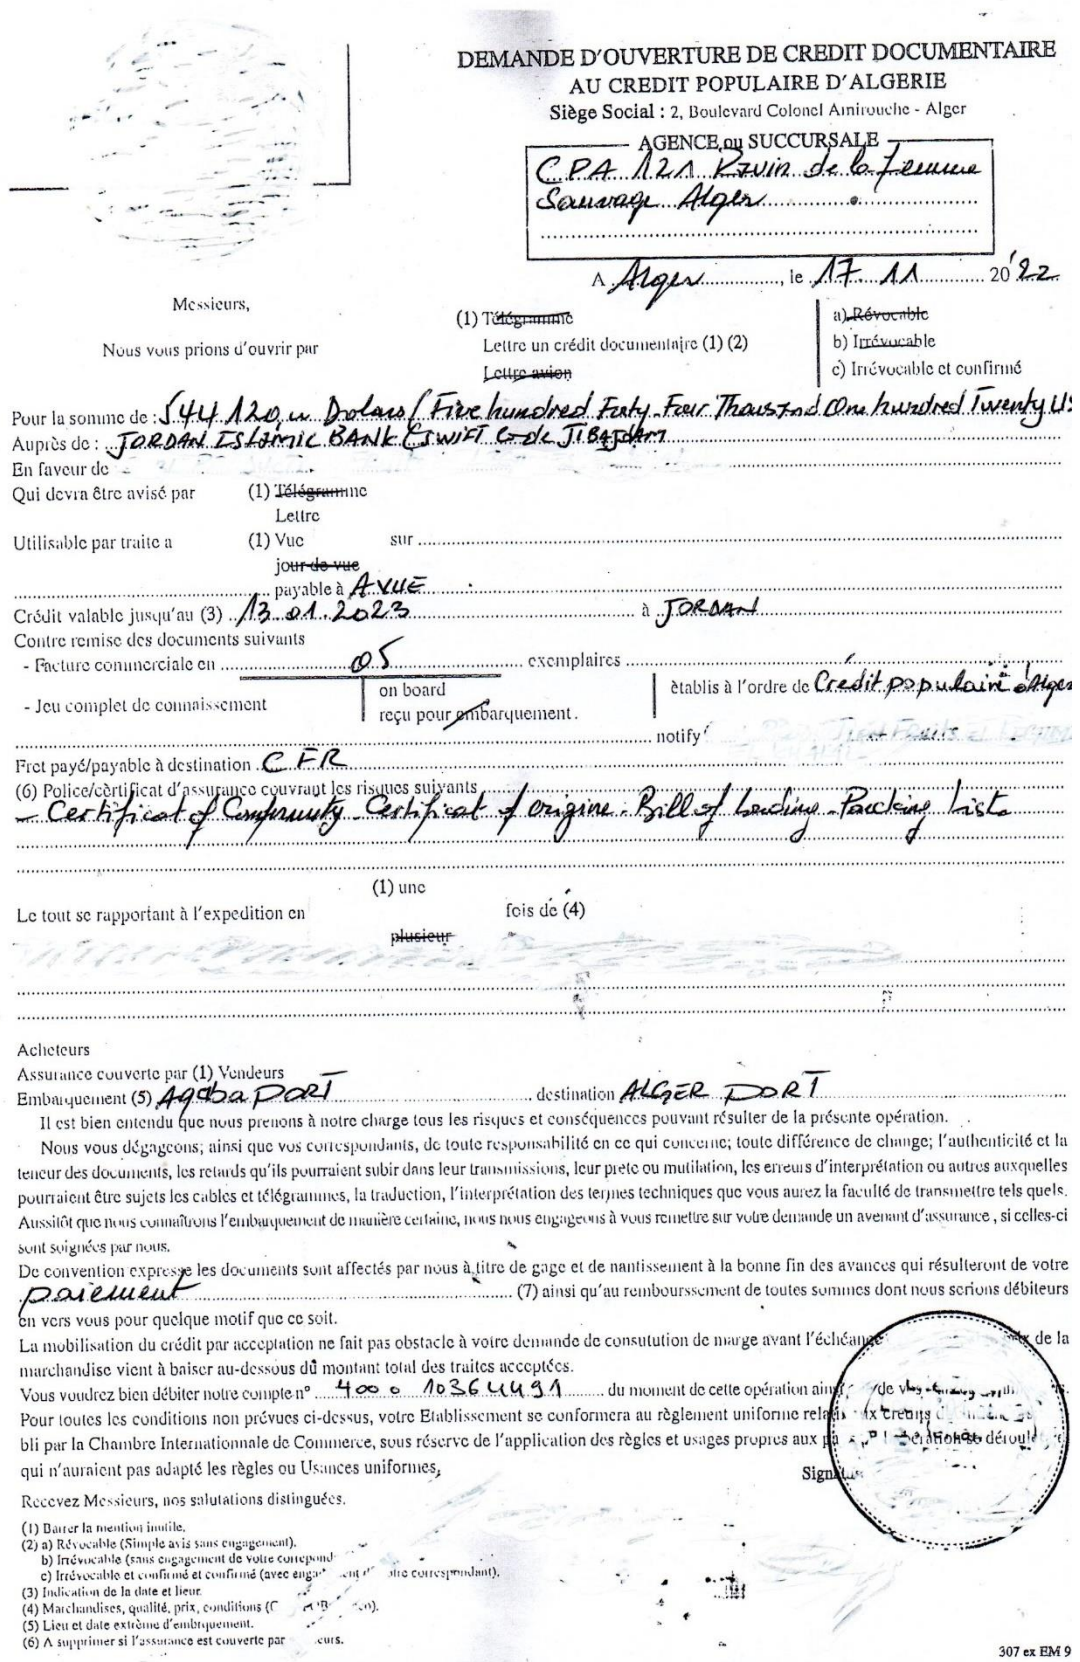 DEMANDE D'OUVERTURE DE CREDIT DOCUMENTAIRE
AU CREDIT POPULAIRE D'ALGERIE
Siège Social : 2, Boulevard Colonel Amirouche - Alger
AGENCE ou SUCCURSALE
CPA 121 Ravin de la Femme
Sauvage Alger
A Alger, le 17 11 2022
Messieurs,
Nous vous prions d'ouvrir par
(1) Télégramme
Lettre un crédit documentaire (1) (2)
Lettre avion
a) Révocable
b) Irrévocable
c) Irrévocable et confirmé
Pour la somme de : 544 120, Dolars / Five hundred Forty Four Thousand One hundred Twenty US
Auprès de : JORDAN ISLAMIC BANK (SWIFT Code JIBAJOAM
En faveur de
Qui devra être avisé par (1) Télégramme
Lettre
Utilisable par traite a (1) Vue sur
jour de vue
payable à A VUE
Crédit valable jusqu'au (3) 13.01.2023 à JORDAN
Contre remise des documents suivants
- Facture commerciale en 05 exemplaires
- Jeu complet de connaissement
on board
reçu pour embarquement.
ètablis à l'ordre de Crédit populaire d'Alger
notify
Fret payé/payable à destination CFR
(6) Police/cèrtificat d'assurance couvrant les risques suivants
- Certificat of Conformity - Certificat of origine - Bill of Lending - Packing List
(1) une
Le tout se rapportant à l'expedition en fois de (4)
plusieur
Acheteurs
Assurance couverte par (1) Vendeurs
Embarquement (5) Aqaba PORT destination ALGER PORT
Il est bien entendu que nous prenons à notre charge tous les risques et conséquences pouvant résulter de la présente opération.
Nous vous dégageons; ainsi que vos correspondants, de toute responsabilité en ce qui concerne; toute différence de change; l'authenticité et la
teneur des documents, les retards qu'ils pourraient subir dans leur transmissions, leur prete ou mutilation, les erreurs d'interprétation ou autres auxquelles
pourraient être sujets les cables et télégrammes, la traduction, l'interprétation des termes techniques que vous aurez la faculté de transmettre tels quels.
Aussitôt que nous connaîtrons l'embarquement de manière certaine, nous nous engageons à vous remettre sur votre demande un avenant d'assurance, si celles-ci
sont soignées par nous.
De convention expresse les documents sont affectés par nous à titre de gage et de nantissement à la bonne fin des avances qui résulteront de votre
paiement (7) ainsi qu'au remboursement de toutes sommes dont nous serions débiteurs
en vers vous pour quelque motif que ce soit.
La mobilisation du crédit par acceptation ne fait pas obstacle à votre demande de consutution de marge avant l'échéance de la
marchandise vient à baiser au-dessous du montant total des traites acceptées.
Vous voudrez bien débiter notre compte n° 400 0 10364491 du moment de cette opération
Pour toutes les conditions non prévues ci-dessus, votre Etablissement se conformera au règlement uniforme
bli par la Chambre Internationnale de Commerce, sous réserve de l'application des règles et usages propres aux
qui n'auraient pas adapté les règles ou Usances uniformes,
Recevez Messieurs, nos salutations distinguées.
(1) Barrer la mention inutile.
(2) a) Révocable (Simple avis sans engagement).
b) Irrévocable (sans engagement de votre
c) Irrévocable et confirmé et confirmé (avec correspondant).
(3) Indication de la date et lieur.
(4) Marchandises, qualité, prix, conditions
(5) Lieu et date extrême d'embrquement.
(6) A supprimer si l'assurance est couverte par
307 ex EM 9